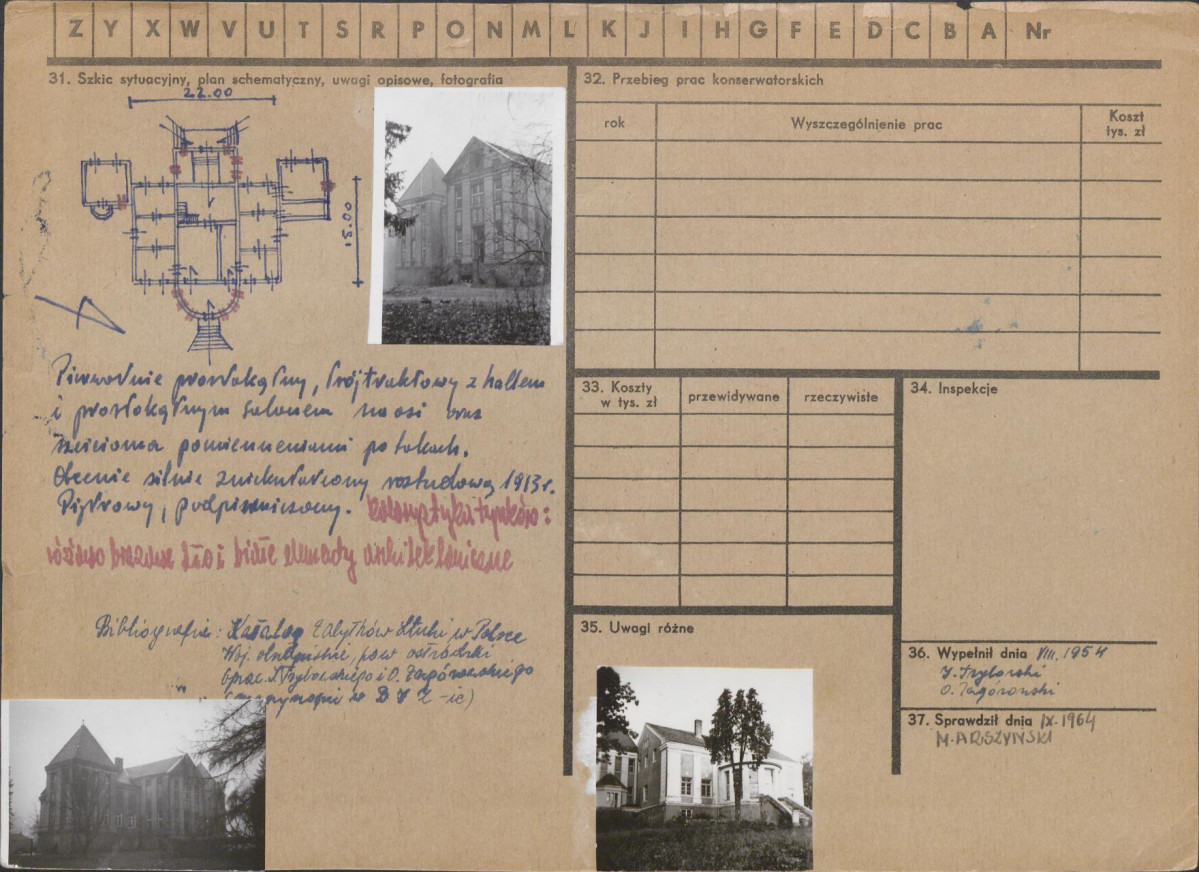 Z Y X W V U T S R P O N M L K J I H G F E D C B A Nr
31. Szkic sytuacyjny, plan schematyczny, uwagi opisowe, fotografia
22.00
15.00
Pierwotnie prostokątny, trójtraktowy z hallem
i prostokątnym salonem na osi oraz
sześcioma pomieszczeniami po bokach.
Obecnie silnie zniekształcony rozbudową 1913 r.
Piętrowy, podpiwniczony. kolorystyka tynków:
różowo brązowe tło i białe elementy architektoniczne
Bibliografia: Katalog Zabytków Sztuki w Polsce
Woj. olsztyńskie, pow. ostródzki
Oprac. i O. Zagórowskiego
(maszynopis w D V Z-ie)
32. Przebieg prac konserwatorskich
rok
Wyszczególnienie prac
Koszt
tys. zł
33. Koszty
w tys. zł
przewidywane
rzeczywiste
34. Inspekcje
35. Uwagi różne
36. Wypełnił dnia VIII. 1954
O. Zagórowski
37. Sprawdził dnia IX. 1964
M. ARSZYŃSKI